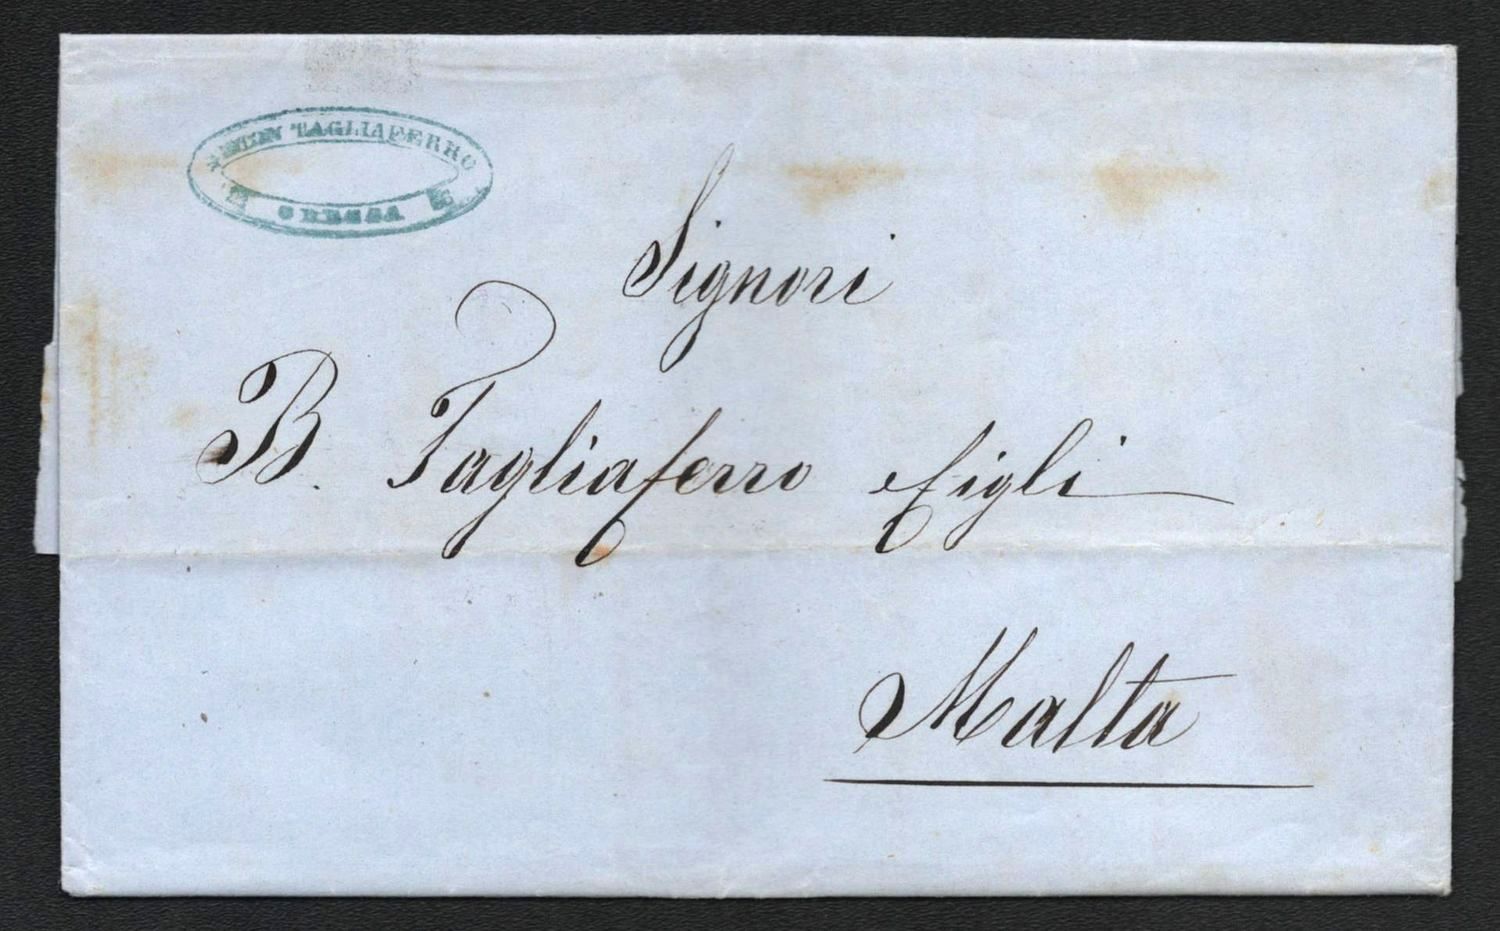 TAGLIAFERRO
Signori
B. Tagliaferro e figli
Malta